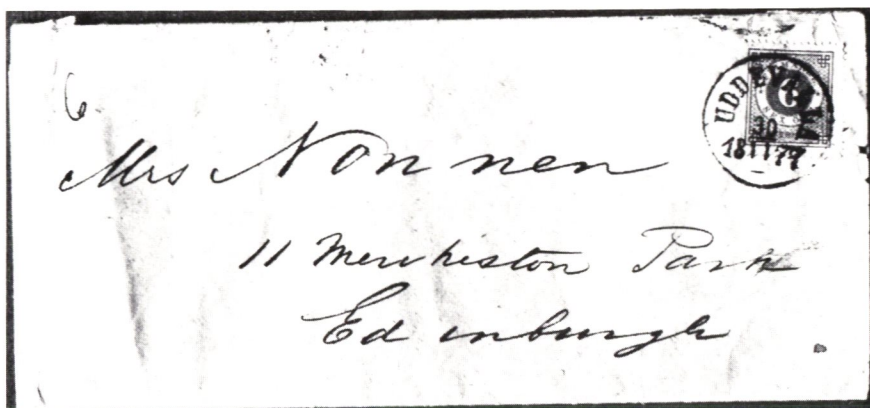 6
UDDEVALLA
30
18 11 77
Mrs Nonnen
11 Merchiston Park
Edinburgh